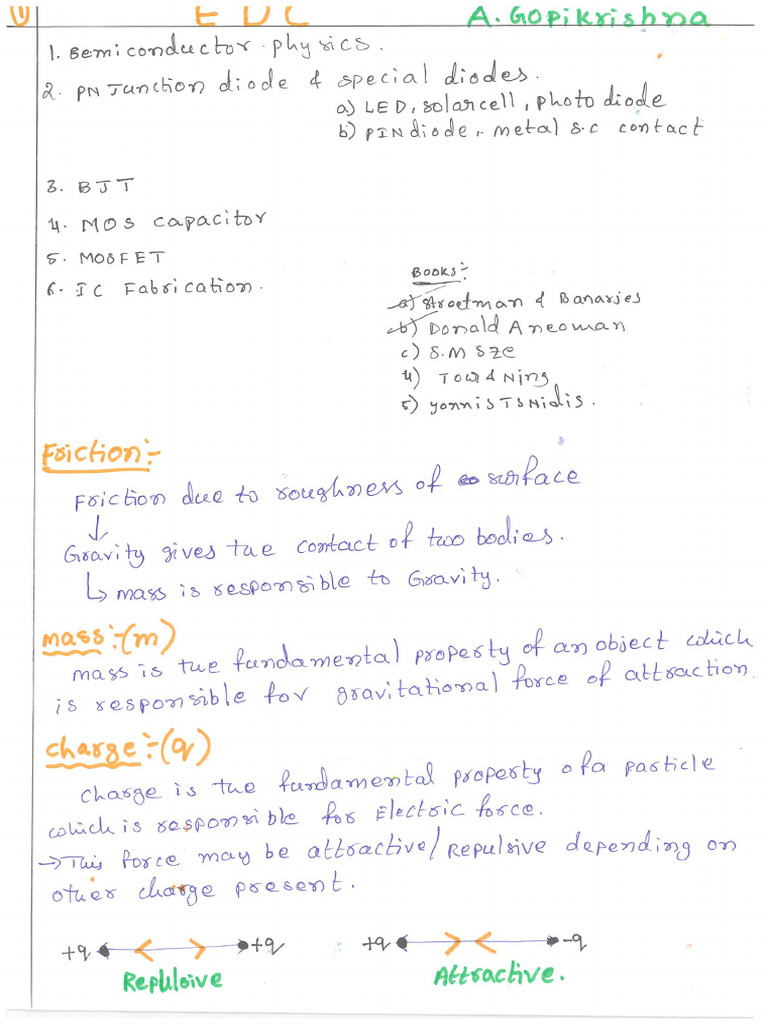 1) EDC A. Gopikrishna
1. Semiconductor physics.
2. PN Junction diode & special diodes.
a) LED, solarcell, photo diode
b) PIN diode, metal s.c contact
3. BJT
4. MOS capacitor
5. MOSFET
6. IC Fabrication.
BOOKS:-
a) Streetman & Banarjes
b) Donald A neoman
c) S.M SZe
4) Tour & Ning
5) yonnis TSNidis.
Friction:-
Friction due to roughness of surface
↓
Gravity gives the contact of two bodies.
↳ mass is responsible to Gravity.
mass:-(m)
mass is the fundamental property of an object which
is responsible for gravitational force of attraction.
charge:-(q)
charge is the fundamental property of a particle
which is responsible for Electric force.
→ This force may be attractive/Repulsive depending on
other charge present.
+q +q +q -q
Repulsive Attractive.